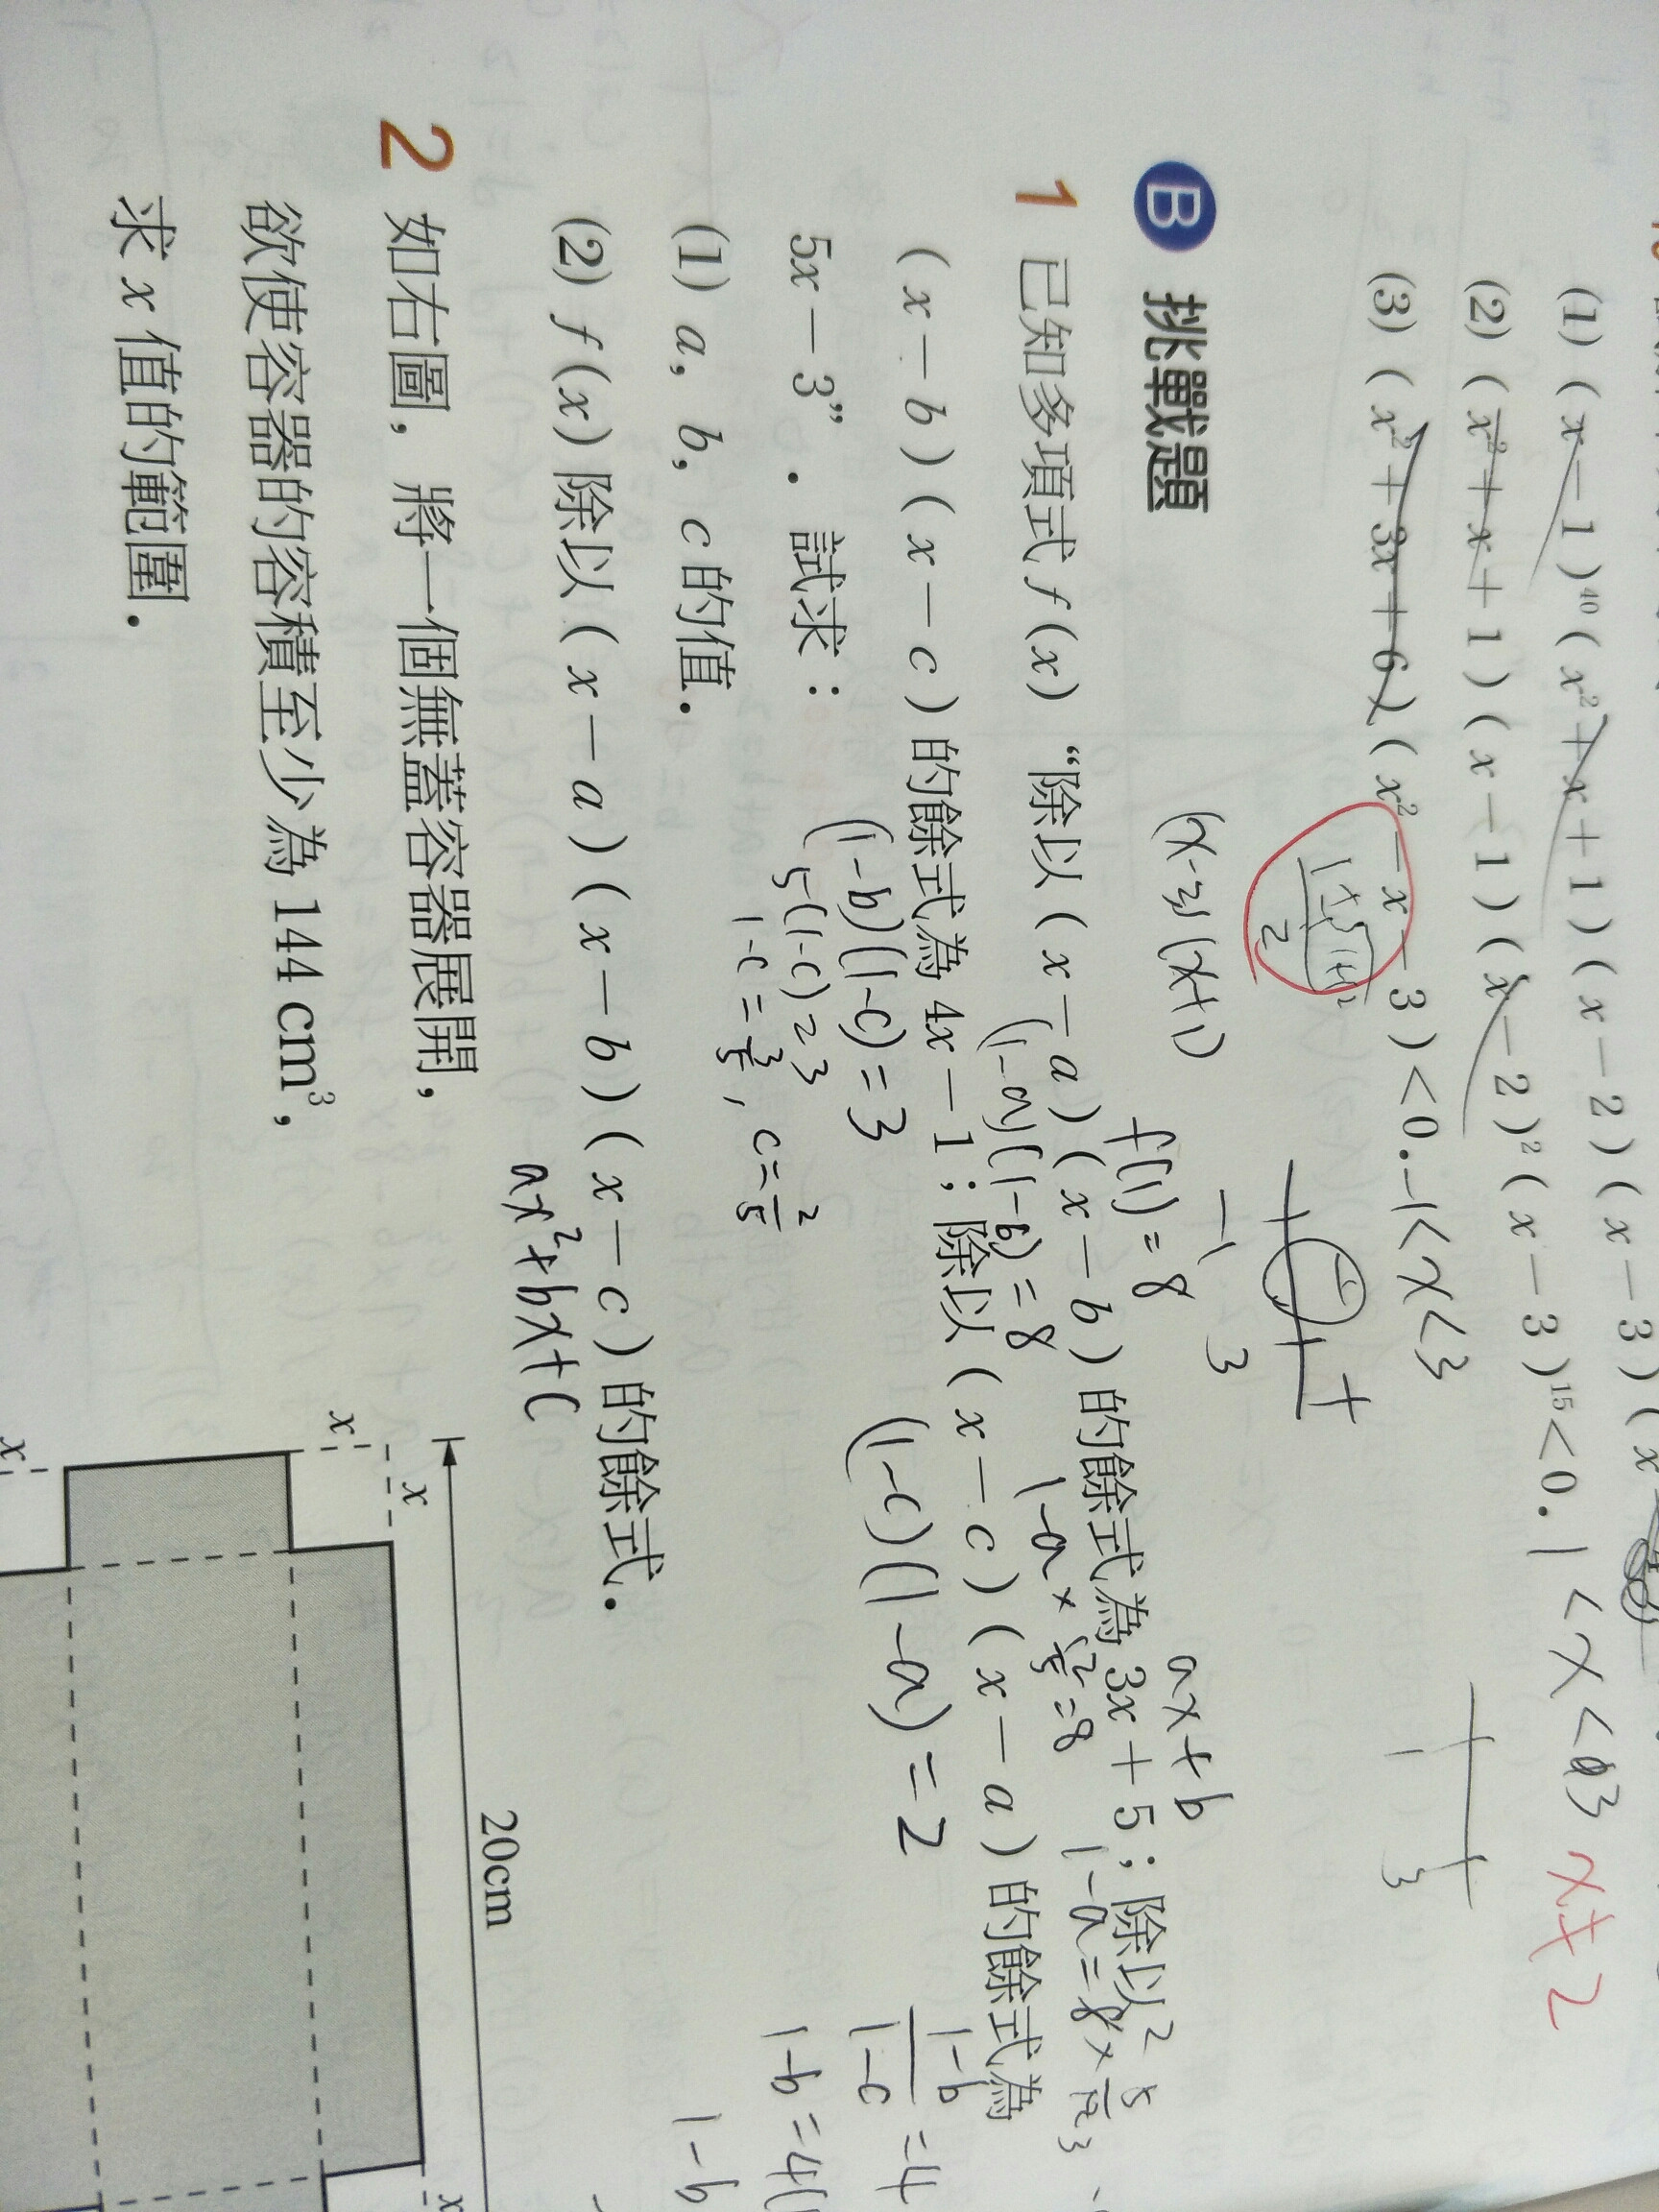 (1) (x－1)⁴⁰(x²＋x＋1)(x－2)(x－3)(x
(2) (x²＋x＋1)(x－1)(x－2)²(x－3)¹⁵＜0. 1＜x＜3 x≠2
(3) (x²＋3x＋6)(x²－x－3)＜0. -1＜x＜3
(x-3)(x+1)
-1 3
1 3
B 挑戰題
f(1)=8
ax+b
1 已知多項式 f(x) “除以 (x－a)(x－b) 的餘式為 3x＋5；除以
(1-a)(1-b)=8
(x－b)(x－c) 的餘式為 4x－1；除以 (x－c)(x－a) 的餘式為
(1-b)(1-c)=3
(1-c)(1-a)=2
5x－3”．試求：
5(1-c)=3
1-c=3/5, c=2/5
(1-b)/(1-c)=4
(1) a, b, c 的值．
1-b=4(1
1-b
(2) f(x) 除以 (x－a)(x－b)(x－c) 的餘式．
ax²+bx+c
2 如右圖，將一個無蓋容器展開，
欲使容器的容積至少為 144 cm³，
求 x 值的範圍．
20cm
x
x
x
x